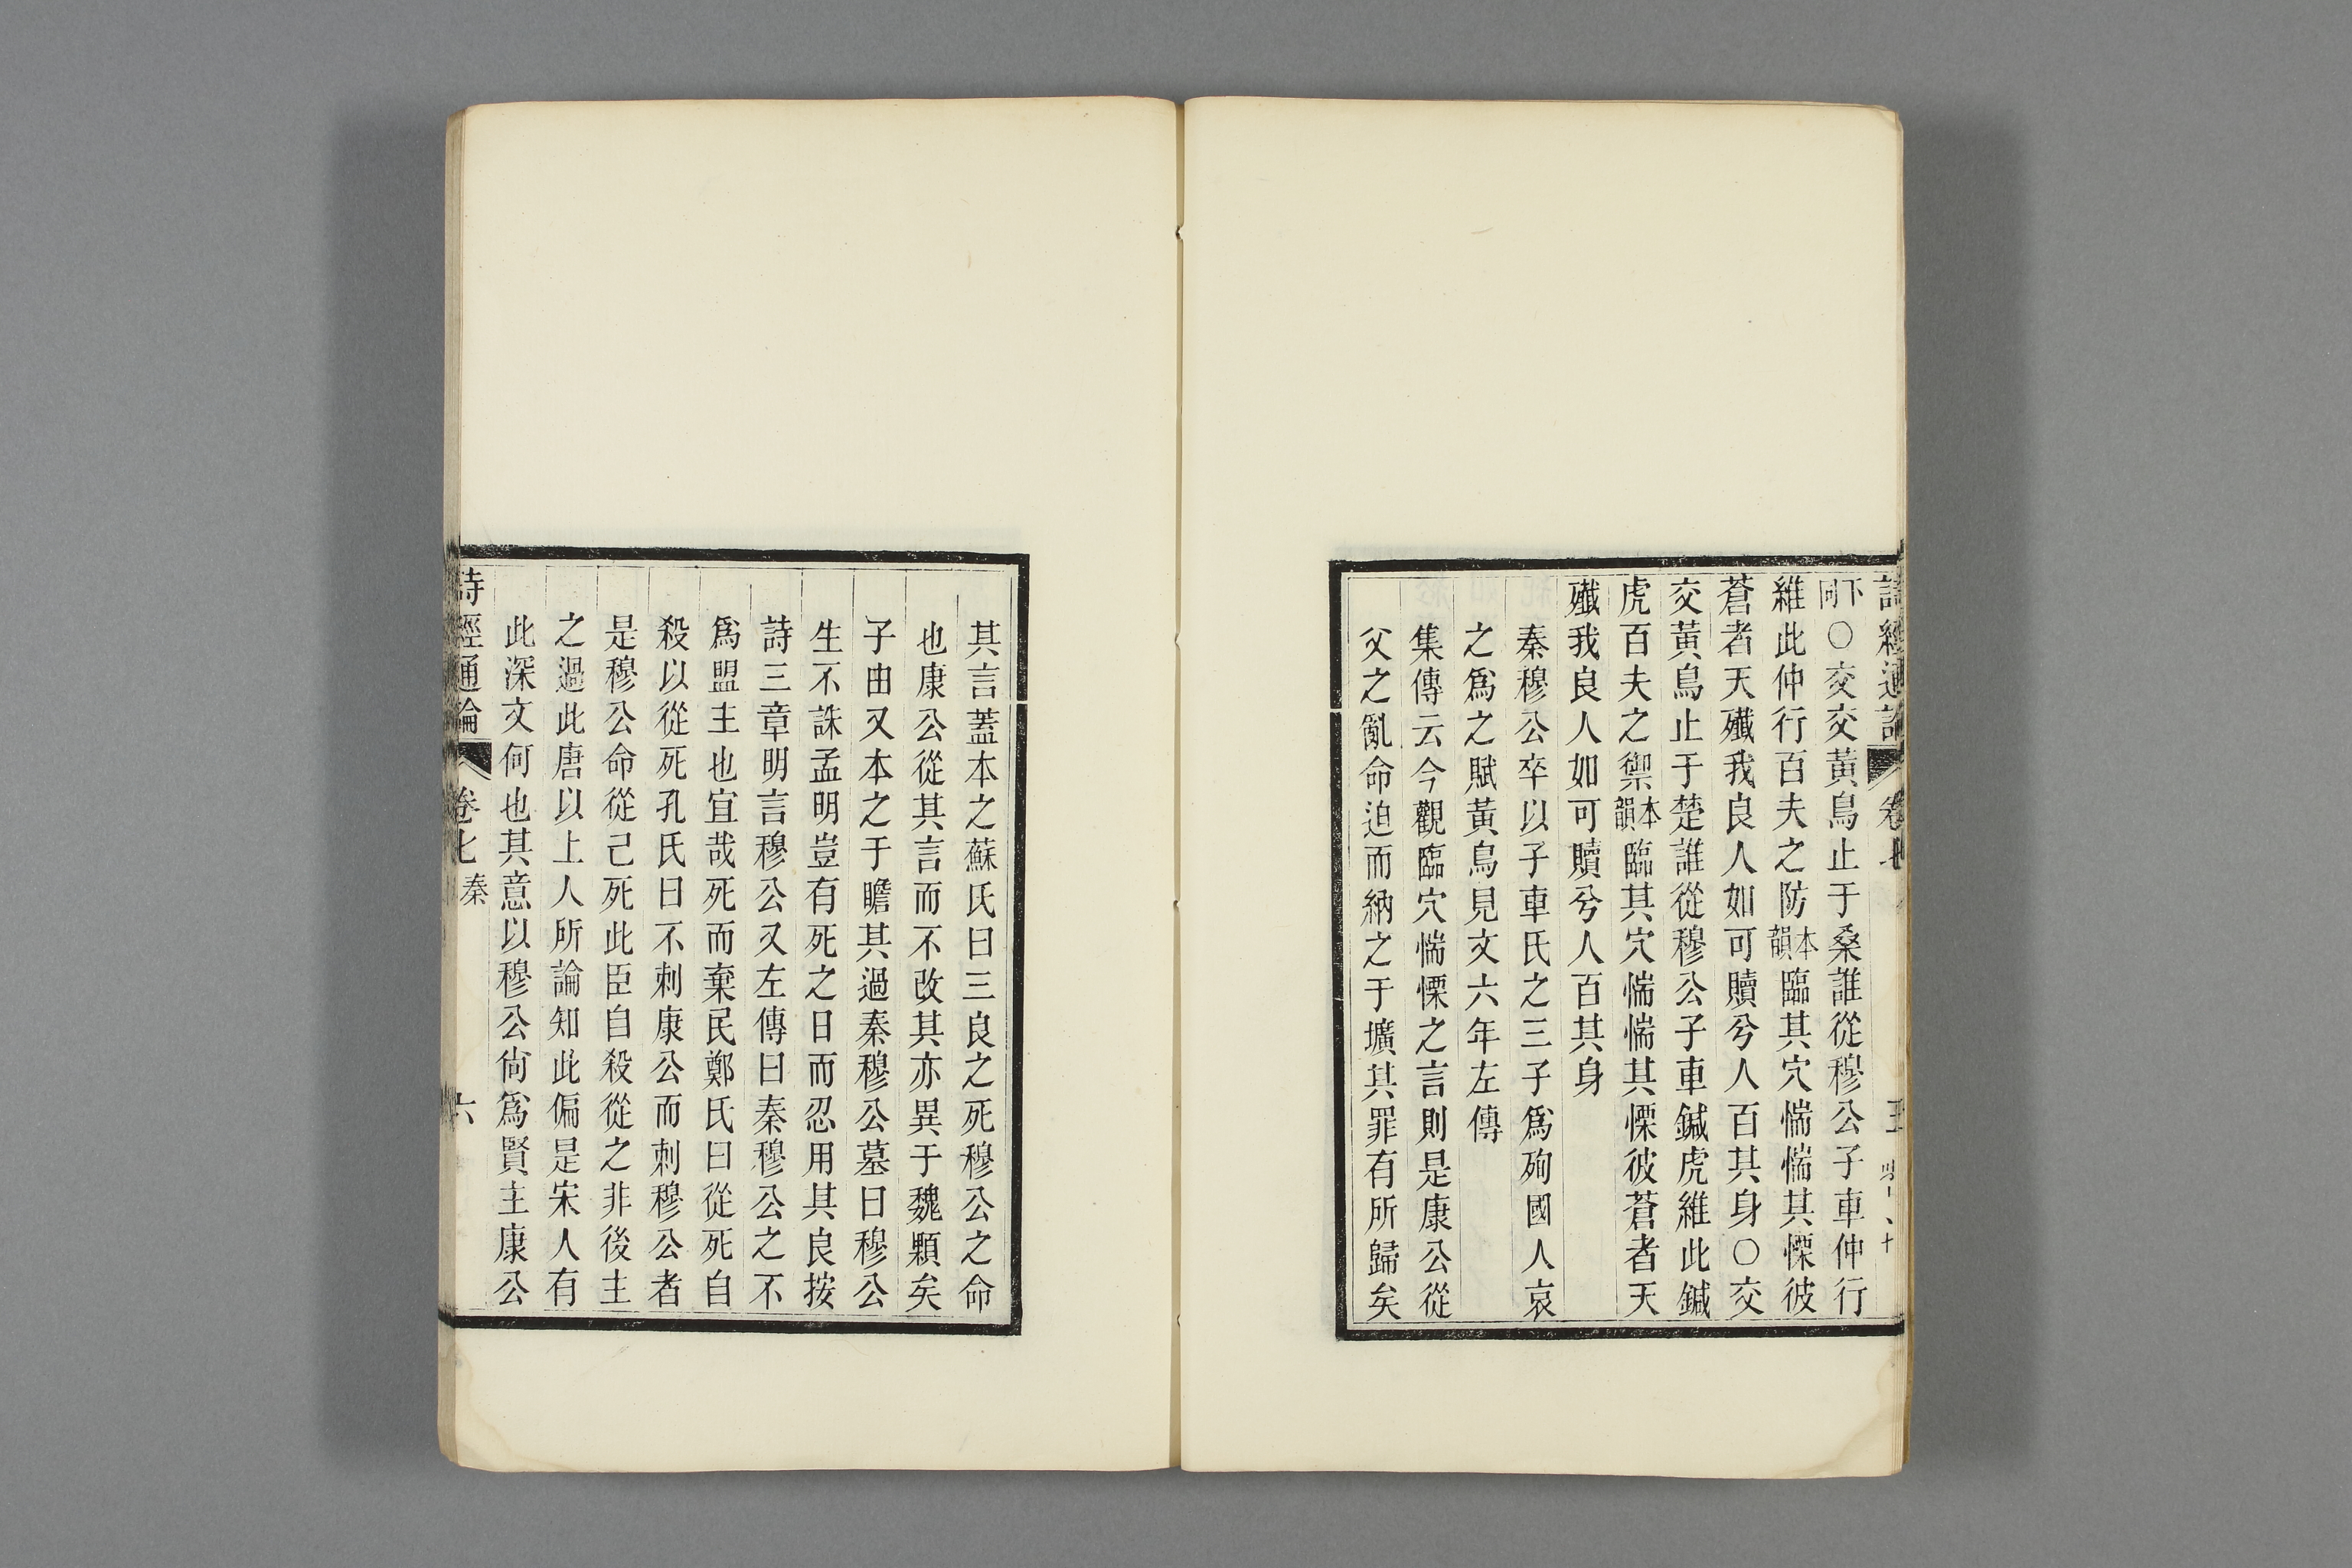 詩經通論 卷七
下同○交交黃鳥止于桑誰從穆公子車仲行
維此仲行百夫之防本韻臨其穴惴惴其慄彼
蒼者天殲我良人如可贖兮人百其身○交
交黃鳥止于楚誰從穆公子車鍼虎維此鍼
虎百夫之禦本韻臨其穴惴惴其慄彼蒼者天
殲我良人如可贖兮人百其身
秦穆公卒以子車氏之三子爲殉國人哀
之爲之賦黃鳥見文六年左傳
集傳云今觀臨穴惴慄之言則是康公從
父之亂命迫而納之于壙其罪有所歸矣
其言蓋本之蘇氏曰三良之死穆公之命
也康公從其言而不改其亦異于魏顆矣
子由又本之于瞻其過秦穆公墓曰穆公
生不誅孟明豈有死之日而忍用其良按
詩三章明言穆公又左傳曰秦穆公之不
爲盟主也宜哉死而棄民鄭氏曰從死自
殺以從死孔氏曰不刺康公而刺穆公者
是穆公命從己死此臣自殺從之非後主
之過此唐以上人所論知此偏是宋人有
此深文何也其意以穆公尙爲賢主康公
詩經通論 卷七 秦 六